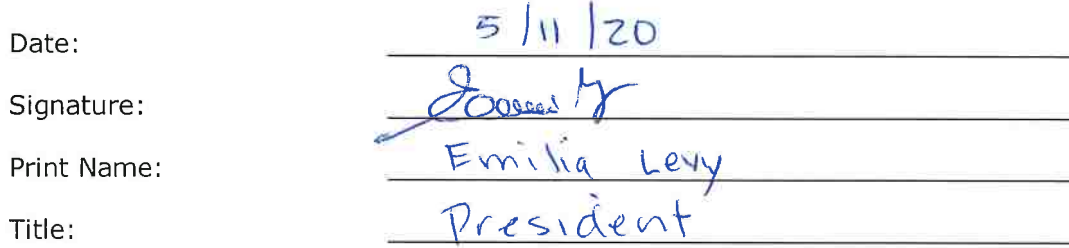 Date: 5/11/20
Signature:
Print Name: Emilia Levy
Title: President